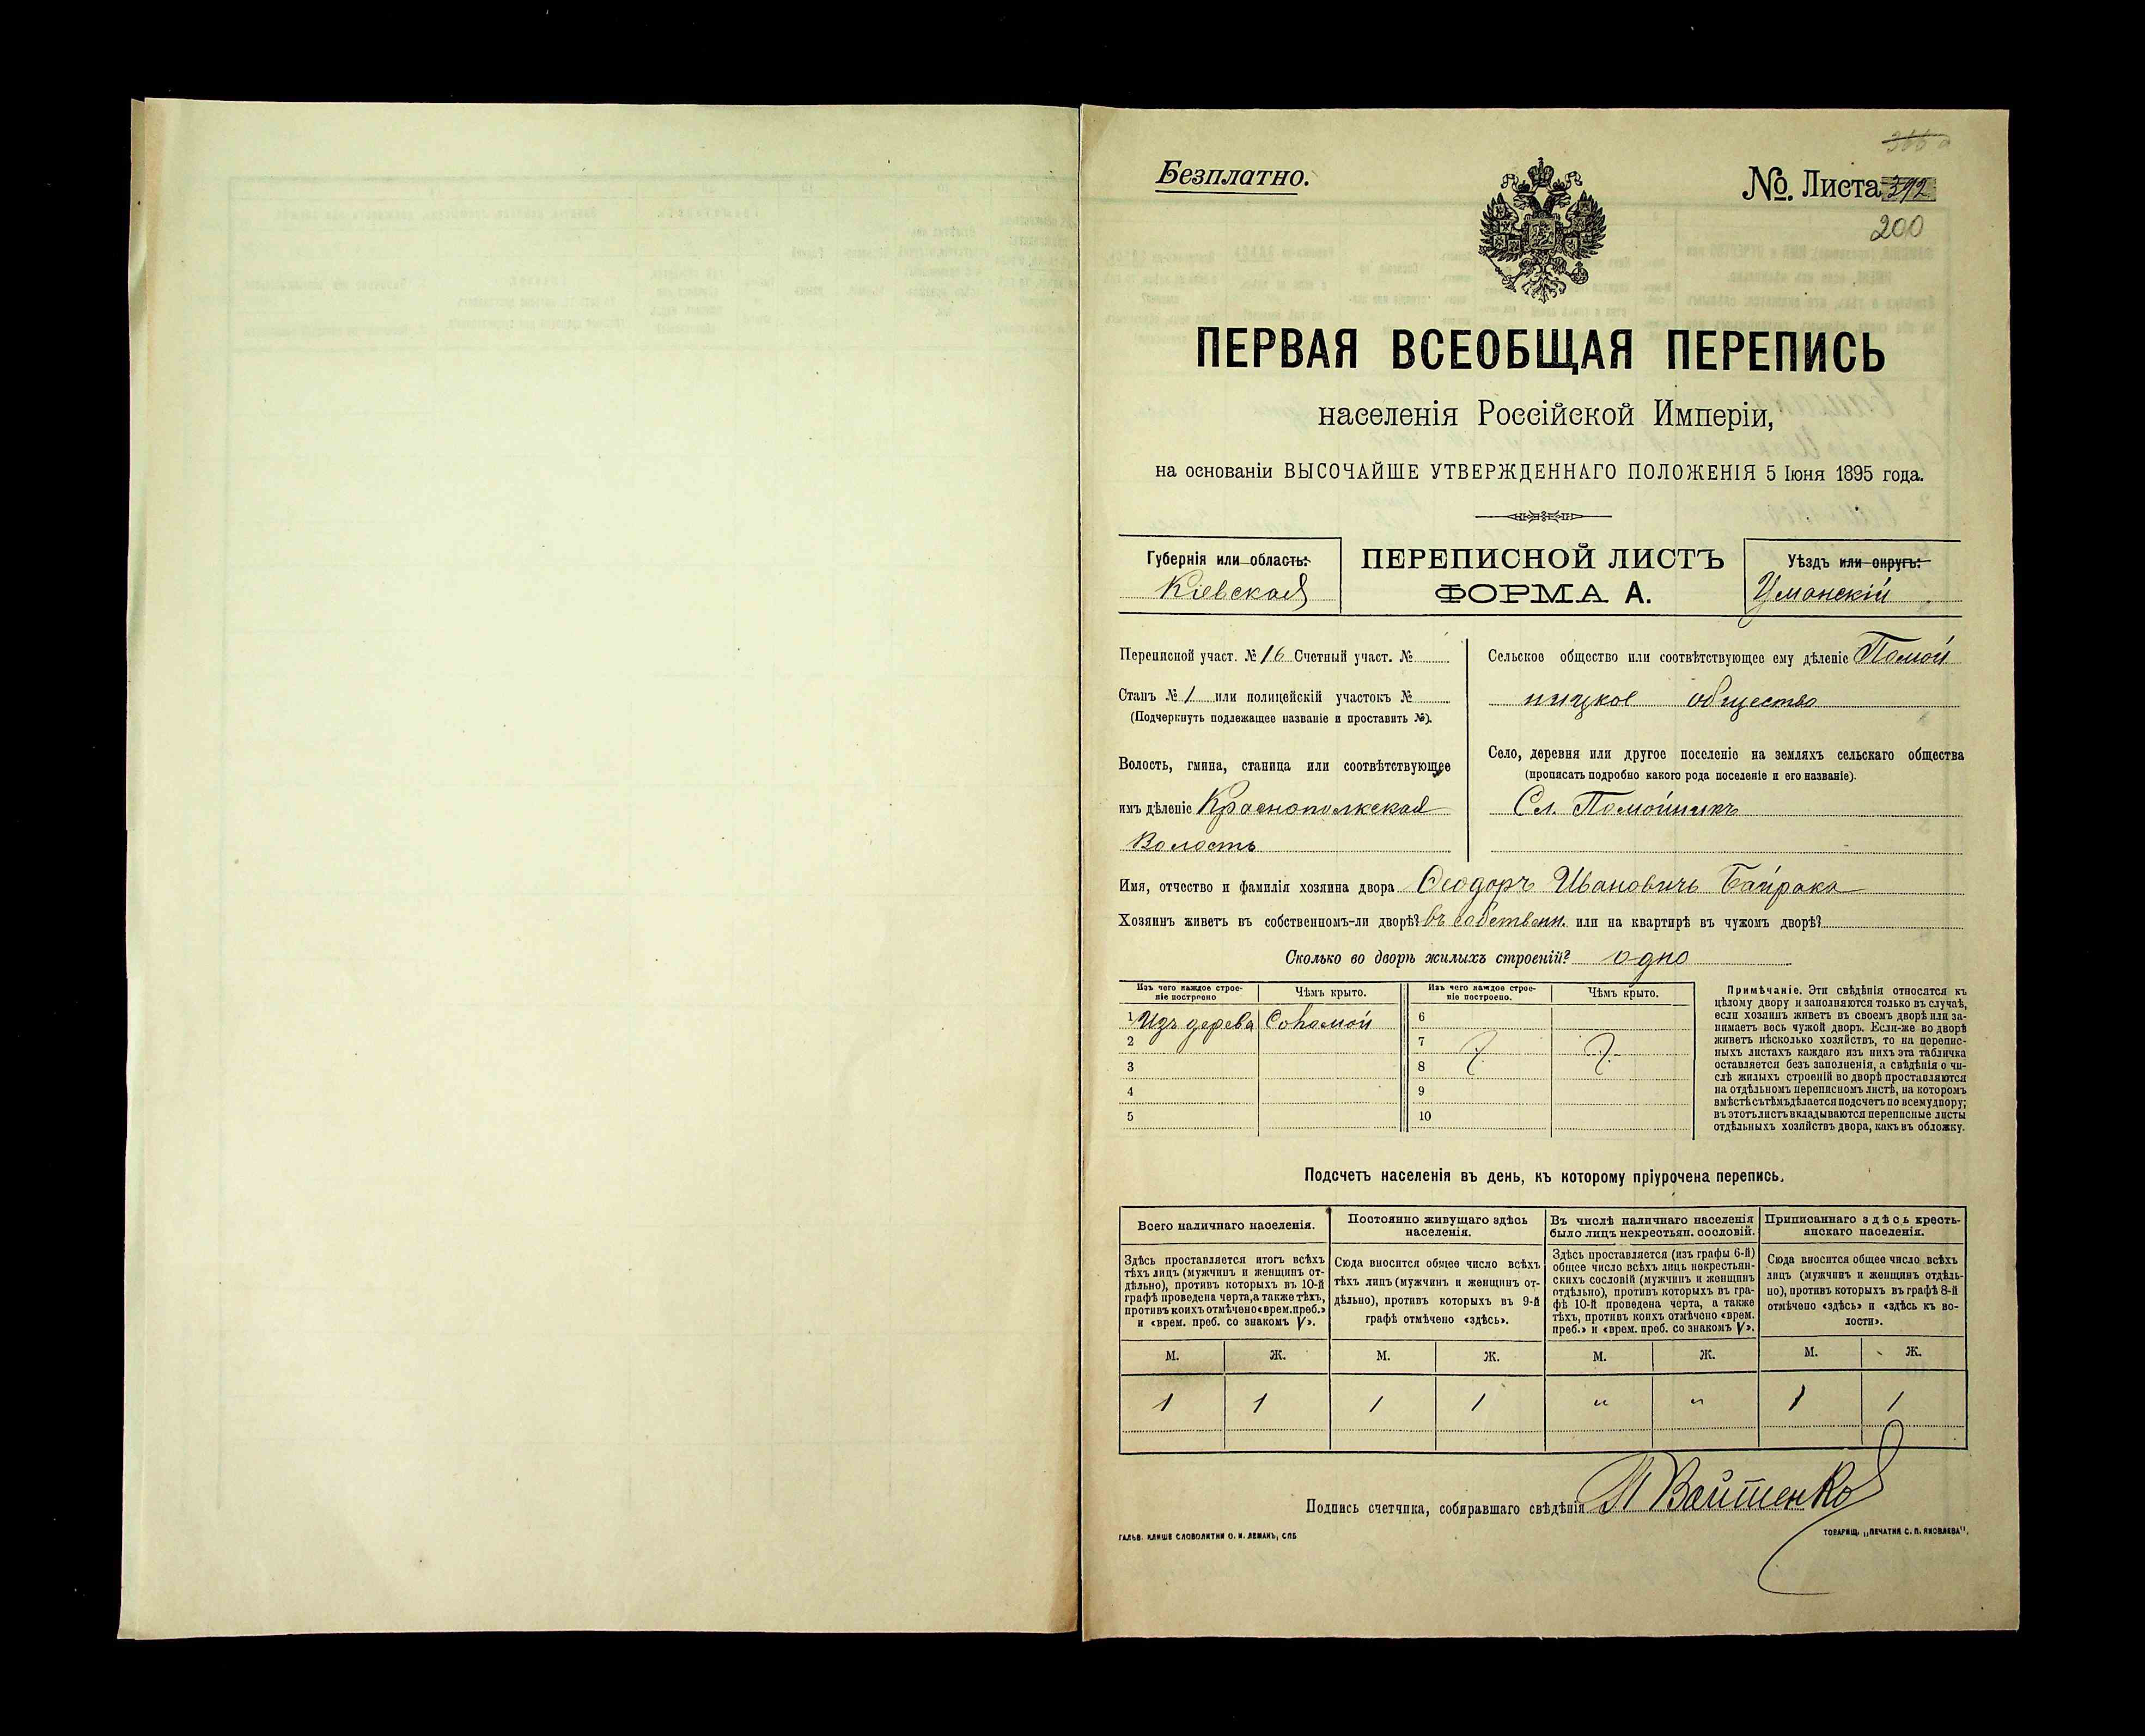 Безплатно.
№. Листа 392
200
ПЕРВАЯ ВСЕОБЩАЯ ПЕРЕПИСЬ
населенія Россійской Имперіи,
на основаніи ВЫСОЧАЙШЕ УТВЕРЖДЕННАГО ПОЛОЖЕНІЯ 5 Іюня 1895 года.
Губернія или область:
Кіевская
ПЕРЕПИСНОЙ ЛИСТЪ
ФОРМА А.
Уѣздъ или округъ:
Уманскій
Переписной участ. № 16 Счетный участ. №
Станъ № 1 или полицейскій участокъ №
(Подчеркнуть подлежащее названіе и проставить №).
Волость, гмина, станица или соотвѣтствующее
имъ дѣленіе Краснополкская
Волость
Сельское общество или соотвѣтствующее ему дѣленіе Помой
ницкое общество
Село, деревня или другое поселеніе на земляхъ сельскаго общества
(прописать подробно какого рода поселеніе и его названіе).
Сл. Помойникъ
Имя, отчество и фамилія хозяина двора Ѳеодоръ Ивановичъ Байрака
Хозяинъ живетъ въ собственномъ-ли дворѣ? въ собственн. или на квартирѣ въ чужомъ дворѣ?
Сколько во дворѣ жилыхъ строеній? одно
Изъ чего каждое строе-
ніе построено
Чѣмъ крыто.
Изъ чего каждое строе-
ніе построено.
Чѣмъ крыто.
1 Изъ дерева Соломой
2
3
4
5
6
7
8
9
10
Примѣчаніе. Эти свѣдѣнія относятся къ
цѣлому двору и заполняются только въ случаѣ,
если хозяинъ живетъ въ своемъ дворѣ или за-
нимаетъ весь чужой дворъ. Если-же во дворѣ
живетъ нѣсколько хозяйствъ, то на перепис-
ныхъ листахъ каждаго изъ нихъ эта табличка
оставляется безъ заполненія, а свѣдѣнія о чи-
слѣ жилыхъ строеній во дворѣ проставляются
на отдѣльномъ переписномъ листѣ, на которомъ
вмѣстѣ съ тѣмъ дѣлается подсчетъ по всему двору;
въ этотъ листъ вкладываются переписные листы
отдѣльныхъ хозяйствъ двора, какъ въ обложку.
Подсчетъ населенія въ день, къ которому пріурочена перепись.
Всего наличнаго населенія.
Здѣсь проставляется итогъ всѣхъ
тѣхъ лицъ (мужчинъ и женщинъ от-
дѣльно), противъ которыхъ въ 10-й
графѣ проведена черта, а также тѣхъ,
противъ коихъ отмѣчено «врем. преб.»
и «врем. преб. со знакомъ V».
Постоянно живущаго здѣсь
населенія.
Сюда вносится общее число всѣхъ
тѣхъ лицъ (мужчинъ и женщинъ от-
дѣльно), противъ которыхъ въ 9-й
графѣ отмѣчено «здѣсь».
Въ числѣ наличнаго населенія
было лицъ некрестьян. сословій.
Здѣсь проставляется (изъ графы 6-й)
общее число всѣхъ лицъ некрестьян-
скихъ сословій (мужчинъ и женщинъ
отдѣльно), противъ которыхъ въ гра-
фѣ 10-й проведена черта, а также
тѣхъ, противъ коихъ отмѣчено «врем.
преб.» и «врем. преб. со знакомъ V».
Приписаннаго здѣсь кресть-
янскаго населенія.
Сюда вносится общее число всѣхъ
лицъ (мужчинъ и женщинъ отдѣль-
но), противъ которыхъ въ графѣ 8-й
отмѣчено «здѣсь» и «здѣсь къ во-
лости».
М. Ж. М. Ж. М. Ж. М. Ж.
1 1 1 1 " " 1 1
Подпись счетчика, собиравшаго свѣдѣнія Войтенко
ГАЛЬВ. КЛИШЕ СЛОВОЛИТНИ О. И. ЛЕМАНЪ, СПБ
ТОВАРИЩ. „ПЕЧАТНЯ С. П. ЯКОВЛЕВА".